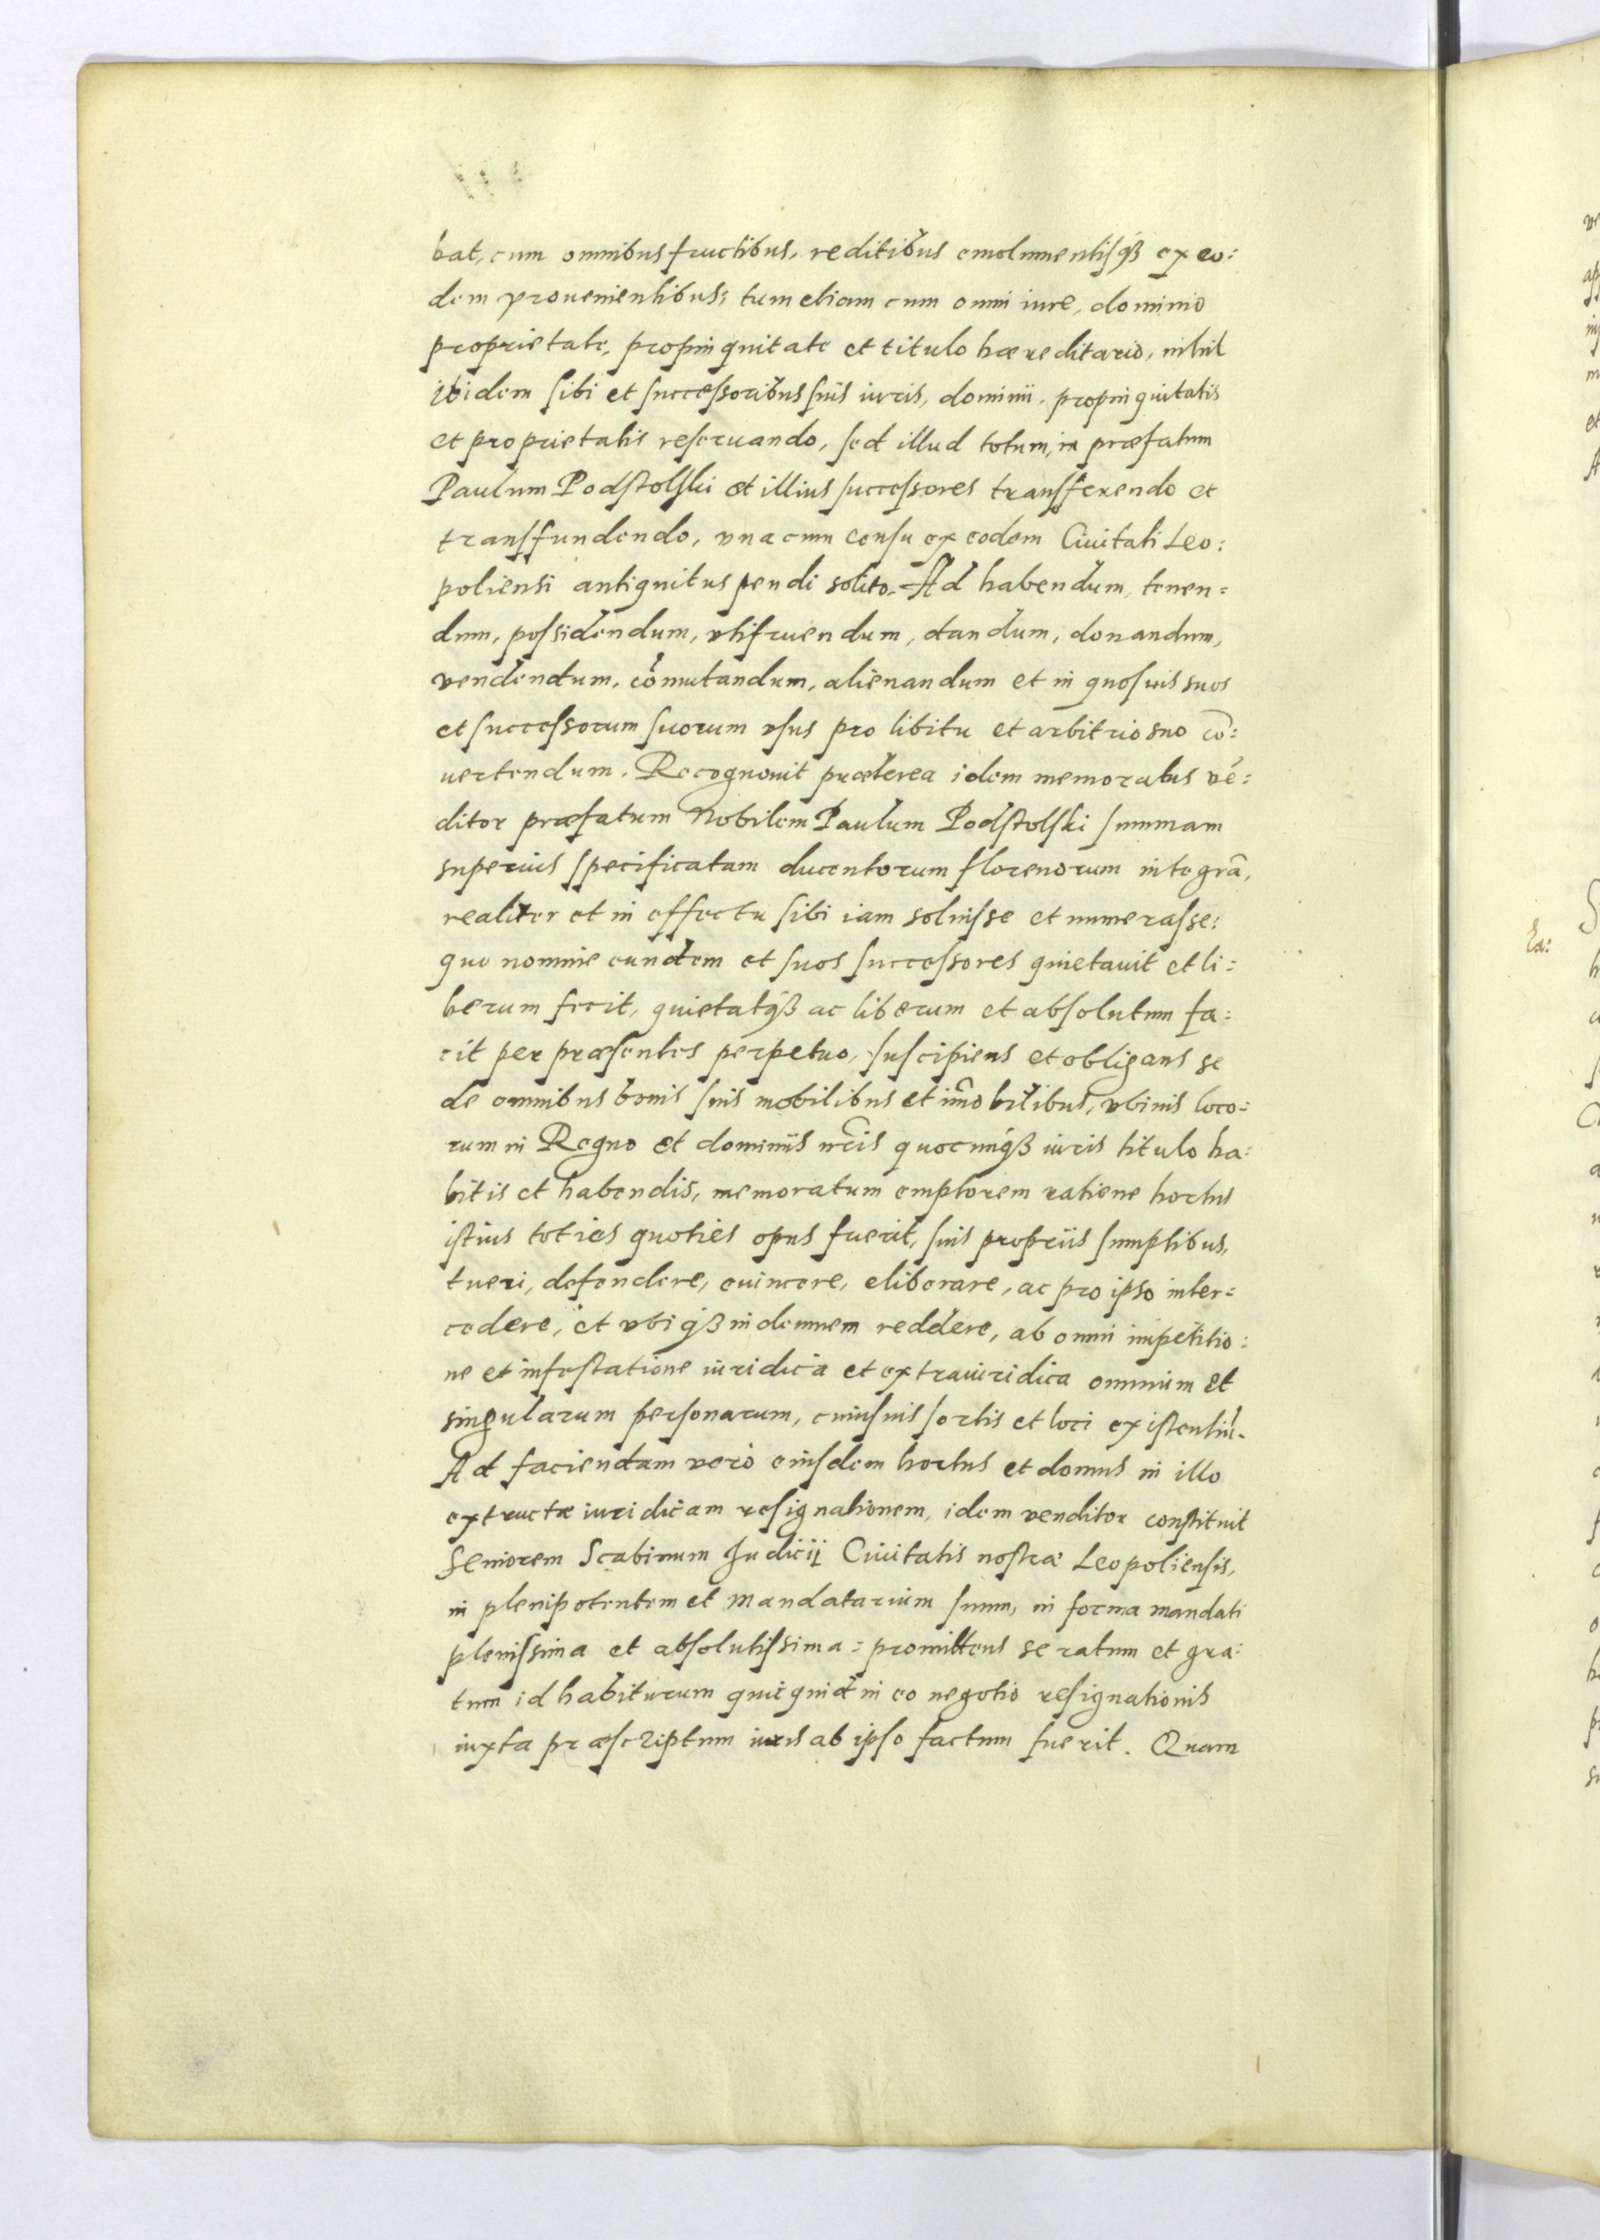 bat, cum omnibus fructibus, reditibus emolumentisq́ꝫ ex eo:
dem prouenientibus: tum etiam cum omni iure, dominio
proprietate, propinquitate et titulo hæreditario, nihil
ibidem sibi et successoribus suis iuris, dominii, propinquitatis
et proprietatis reseruando, sed illud totum, in præfatum
Paulum Podstolski et illius successores transferendo et
transfundendo, vna cum censu ex eodem Ciuitati Leo:
poliensi antiquitus pendi solito. Ad habendum, tenen=
dum, possidendum, vtifruendum, dandum, donandum,
vendendum, cõmutandum, alienandum et in quosuis suos
et successorum suorum vsus pro libitu et arbitrio suo cõ:
uertendum. Recognouit præterea idem memoratus vẽ:
ditor præfatum Nobilem Paulum Podstolski summam
superius specificatam ducentorum florenorum integrã,
realiter et in effectu sibi iam soluisse et numerasse:
quo nomine eundem et suos successores quietauit et li:
berum fecit, quietatq́ꝫ ac liberum et absolutum fa:
cit per præsentes perpetuo, suscipiens et obligans se
de omnibus bonis suis mobilibus et im̃obilibus, vbiuis loco:
rum in Regno et dominiis nr̃is quocunq́ꝫ iuris titulo ha:
bitis et habendis, memoratum emptorem ratione hortus
istius toties quoties opus fuerit, suis propriis sumptibus,
tueri, defendere, euincere, eliberare, ac pro ipso inter=
cedere, et vbiq́ꝫ indemnem reddere, ab omni impetitio:
ne et infestatione iuridica et extraiuridica omnium et
singularum personarum, cuiusuis sortis et loci existentiũ.
Ad faciendam verò eiusdem hortus et domus in illo
extructæ iuridicam resignationem, idem venditor constituit
Seniorem Scabinum Judicij Ciuitatis nostræ Leopoliensis,
in plenipotentem et Mandatarium suum, in forma mandati
plenissima et absolutissima: promittens se ratum et gra:
tum id habiturum quicquid in eo negotio resignationis
iuxta præscriptum iuris ab ipso factum fuerit. Quam